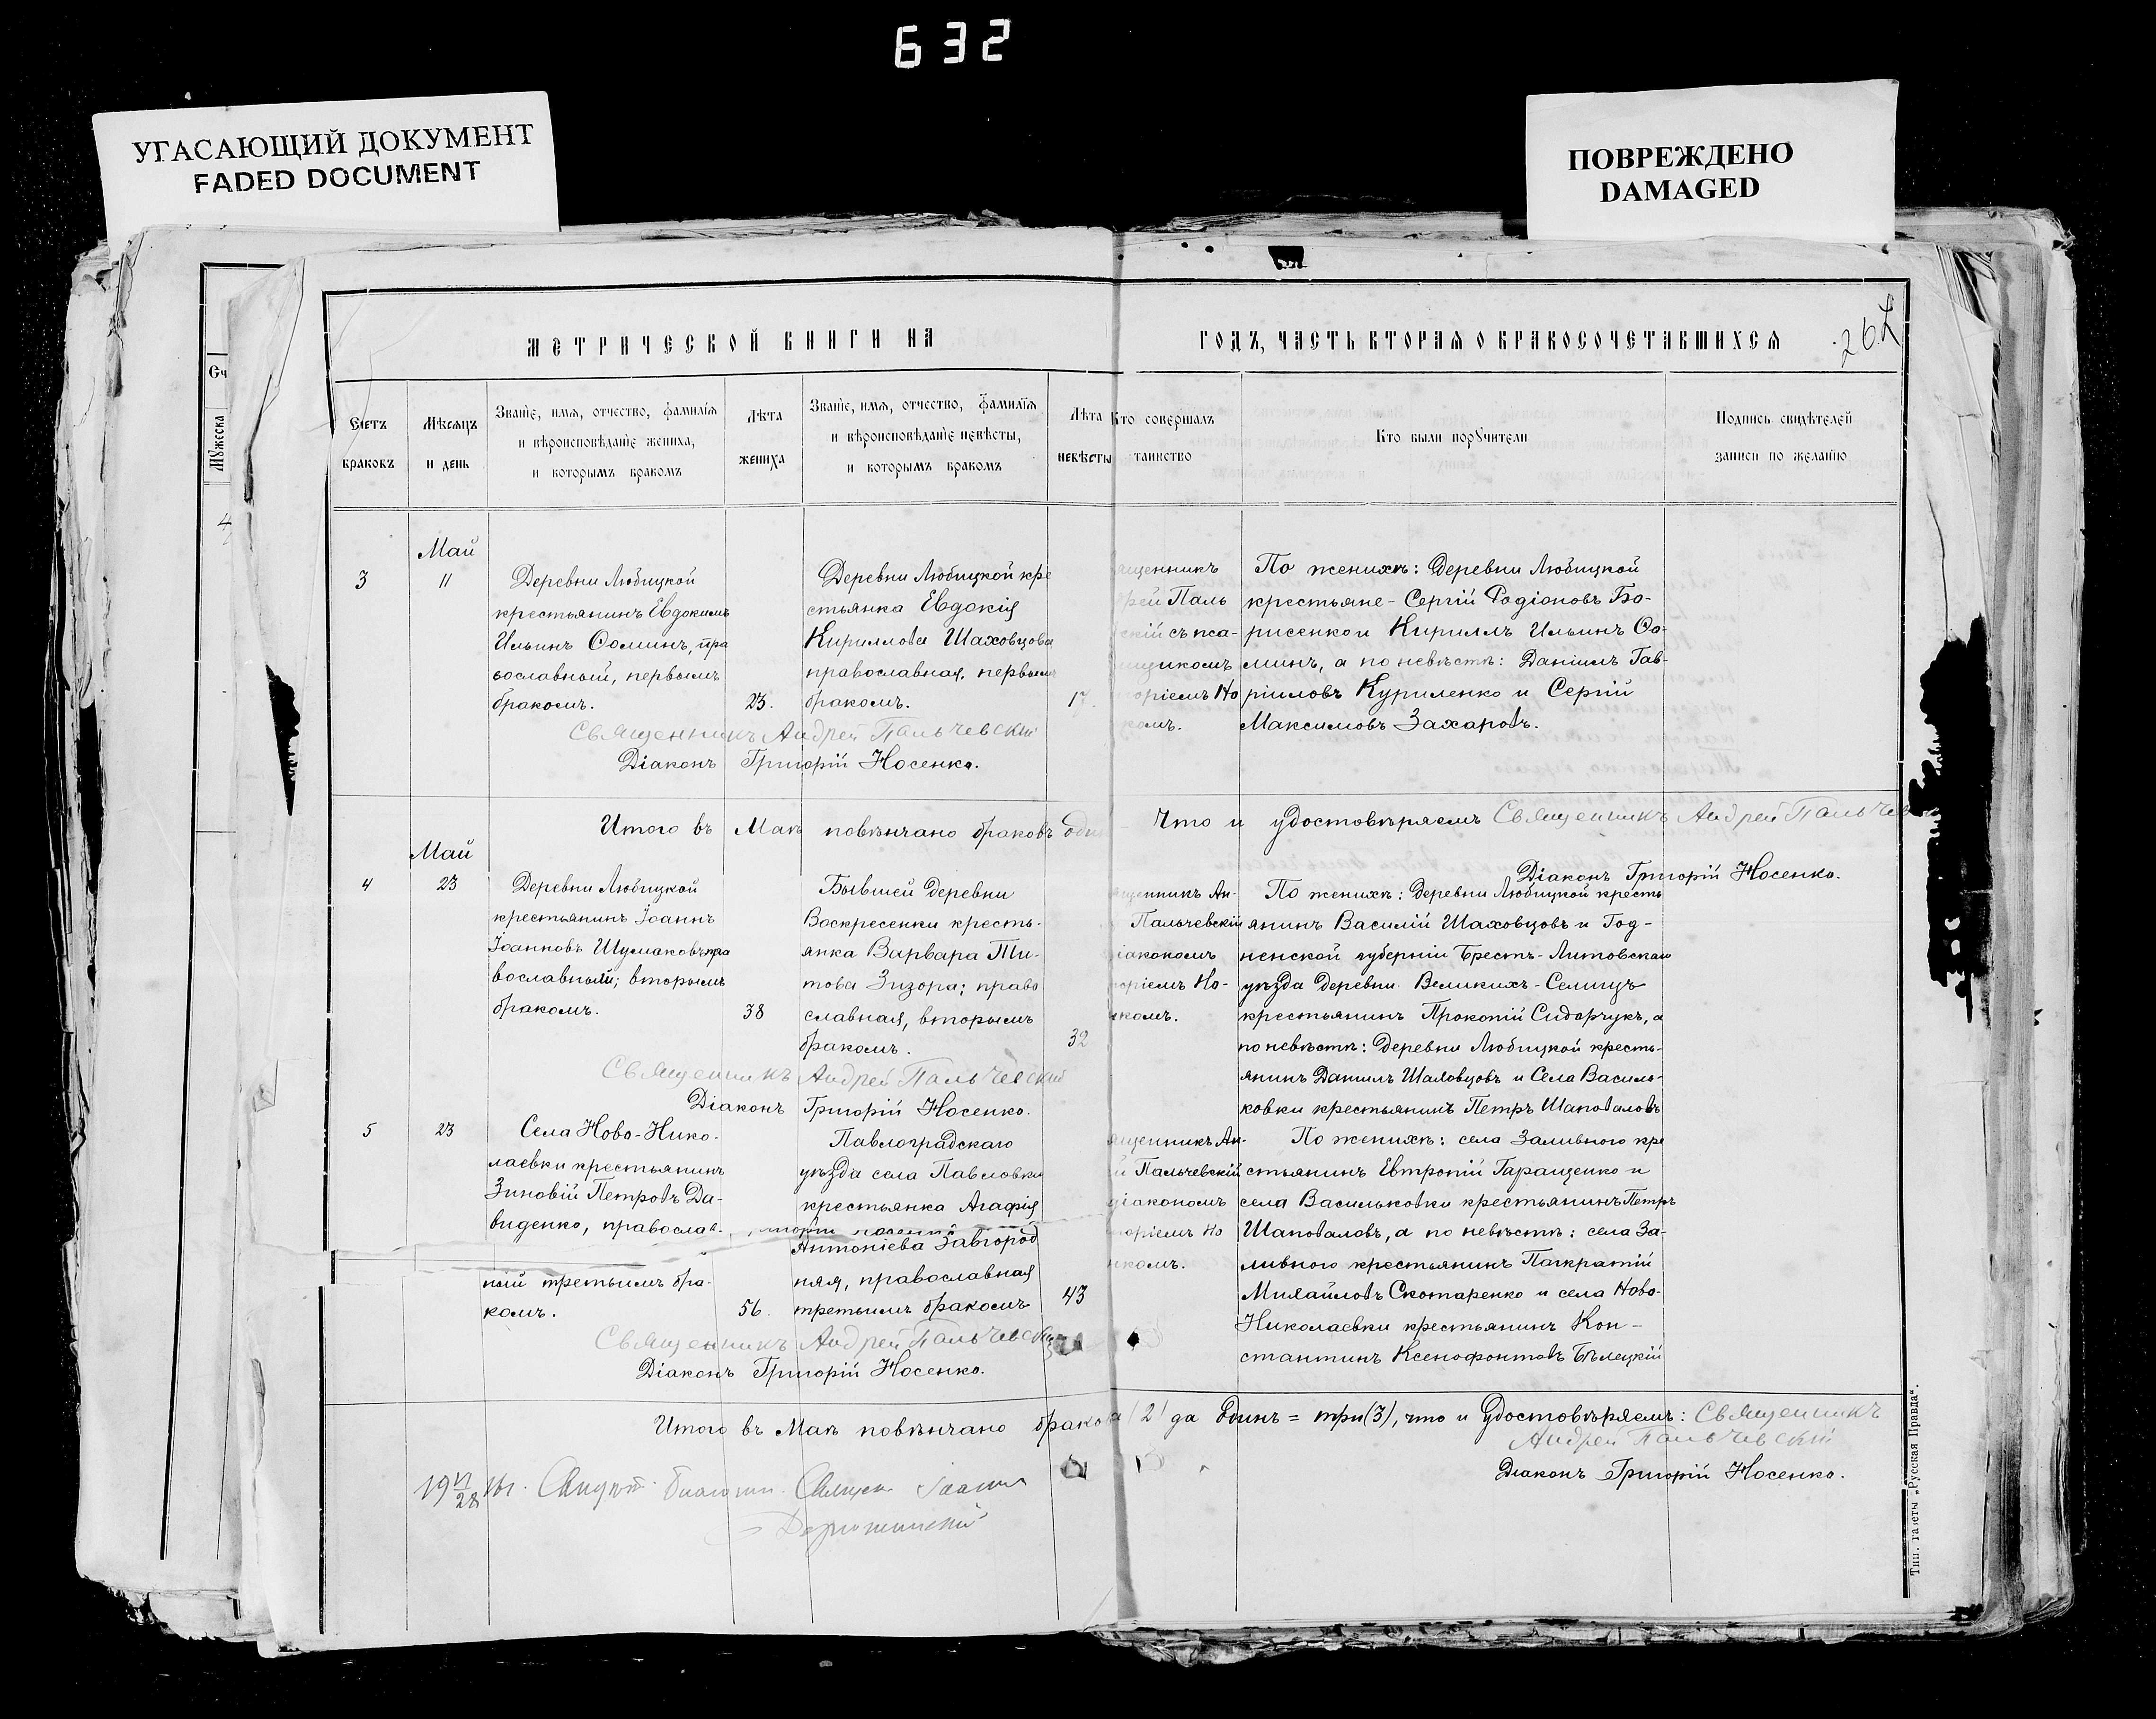 632
УГАСАЮЩИЙ ДОКУМЕНТ
FADED DOCUMENT
ПОВРЕЖДЕНО
DAMAGED
Сч
Мужеска
4
МЕТРИЧЕСКОЙ КНИГИ НА
ГОДЪ, ЧАСТЬ ВТОРАЯ О БРАКОСОЧЕТАВШИХСЯ
Счетъ браковъ
Мѣсяцъ и день
Званіе, имя, отчество, фамилія
и вѣроисповѣданіе жениха,
и которымъ бракомъ
Лѣта жениха
Званіе, имя, отчество, фамилія
и вѣроисповѣданіе невѣсты,
и которымъ бракомъ
Лѣта невѣсты
Кто совершалъ
таинство
Кто были поручители
Подпись свидѣтелей
записи по желанію
3
Май
11
Деревни Любицкой
крестьянинъ Евдокимъ
Ильинъ Ѳоминъ, пра
вославный, первымъ
бракомъ.
23.
Деревни Любицкой кре
стьянка Евдокія
Кириллова Шаховцова
православная, первымъ
бракомъ.
17.
ященникъ
рей Паль
скій съ пса-
щикомъ
оріемъ Но
комъ.
По женихѣ: Деревни Любицкой
крестьяне - Сергій Родіоновъ Бо-
рисенко и Кириллъ Ильинъ Ѳо-
минъ, а по невѣстѣ: Даніилъ Гав-
ріиловъ Куриленко и Сергій
Максимовъ Захаровъ.
Священникъ Андрей Пальчевскій
Діаконъ Григорій Носенко.
Итого въ Маѣ повѣнчано браковъ один
Что и удостовѣряемъ Священникъ Андрей Пальчев
Діаконъ Григорій Носенко.
4
Май
23
Деревни Любицкой
крестьянинъ Іоаннъ
Іоанновъ Шумаковъ, пра
вославный; вторымъ
бракомъ.
38
Бывшей деревни
Воскресенки кресть-
янка Варвара Ти-
това Зизора; право
славная, вторымъ
бракомъ.
32
ященникъ Ан-
Пальчевскій
діакономъ
оріемъ Но-
нкомъ.
По женихѣ: Деревни Любицкой кресть
янинъ Василій Шаховцовъ и Год-
ненской губерніи Брестъ-Литовскаго
уѣзда деревни Великихъ-Селищъ
крестьянинъ Прокопій Сидорчукъ, а
по невѣстѣ: Деревни Любицкой кресть-
янинъ Данилъ Шаховцовъ и Села Василь-
ковки крестьянинъ Петръ Шаповаловъ
Священникъ Андрей Пальчевскій
Діаконъ Григорій Носенко.
5
23
Села Ново-Нико-
лаевки крестьянинъ
Зиновій Петровъ Да-
виденко, православ-
ный третьимъ бра-
комъ.
56.
Павлоградскаго
уѣзда села Павловки
крестьянка Агафія
Антоніева Завгород
няя, православная
третьимъ бракомъ
43
ященникъ Ан-
й Пальчевскій
діакономъ
горіемъ Но
нкомъ.
По женихѣ: села Заливного кре
стьянинъ Евтропій Таращенко и
села Васильковки крестьянинъ Петръ
Шаповаловъ, а по невѣстѣ: села За-
ливного крестьянинъ Панкратій
Михайловъ Скотаренко и села Ново-
Николаевки крестьянинъ Кон-
стантинъ Ксенофонтовъ Бѣлецкій
Священникъ Андрей Пальчевскій
Діаконъ Григорій Носенко.
Итого въ Маѣ повѣнчано брака (2) да одинъ = три (3), что и удостовѣряемъ: Священникъ
Андрей Пальчевскій
Діаконъ Григорій Носенко.
Тип. газеты „Русская Правда“.